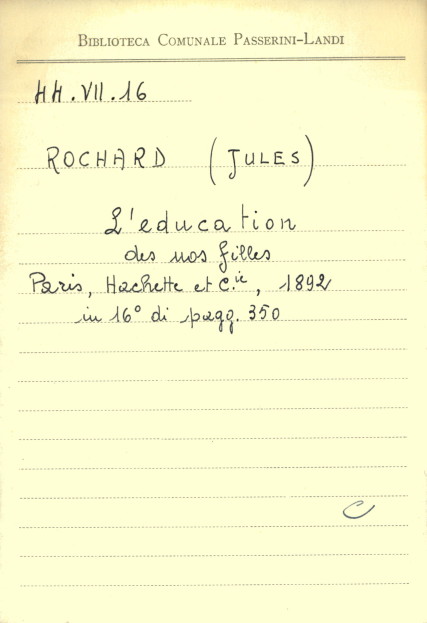 BIBLIOTECA COMUNALE PASSERINI-LANDI
HH.VII.16
ROCHARD (JULES)
L'education
des nos filles
Paris, Hachette et C.ie, 1892
in 16° di pagg. 350
C